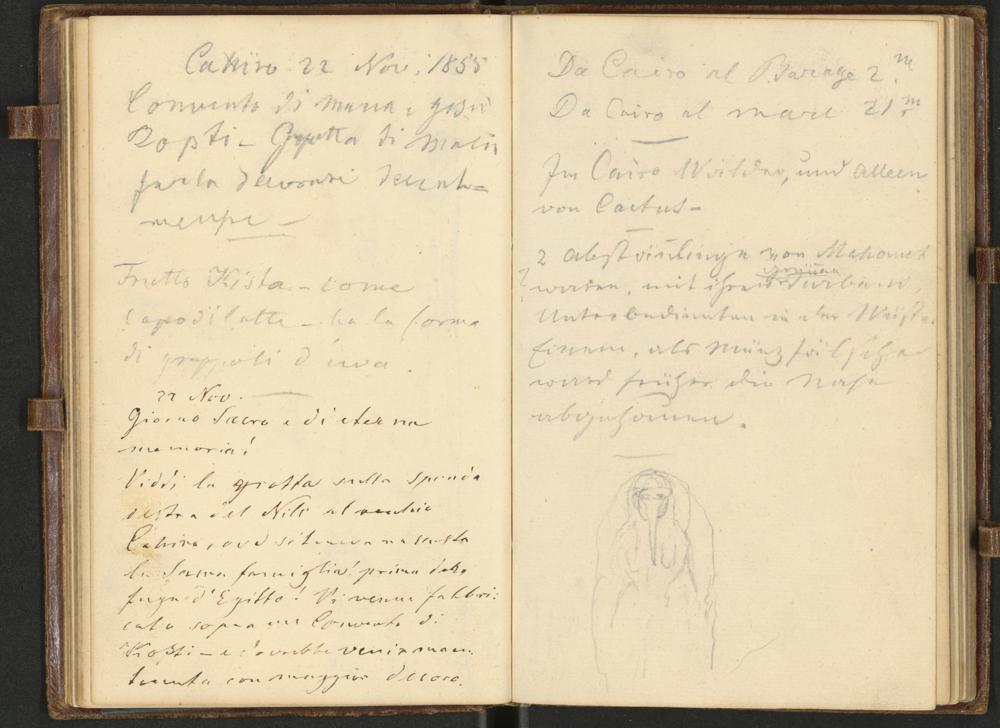 Cahiro 22 Nov. 1855
Convento di Maria e Gesù
Kopti - Grotta di Maria
farla decorare decente=
mente -
Frutto Kista - come
capo di latte - ha la forma
di grappoli d'uva.
22 Nov.
Giorno Sacro e di eterna
memoria!
Viddi la grotta sulla sponda
destra del Nilo al vecchio
Cahiro, ove si teneva nascosta
la Sacra famiglia! prima della
fuga d'Egitto! Vi venne fabbri:
cato sopra un Convento di
Kopti - e dovrebbe venir man:
tenuta con maggior decoro.
Da Cairo al Barage 2 m
Da Cairo al mare 21 m
In Cairo Wälder, und Alleen
von Cactus -
2 Abkömmlinge von Mahomet
waren, mit ihren grünen Turbans,
Unterbedienten in der Wüste.
Einem, als Münzfälscher
ward früher die Nase
abgenommen.